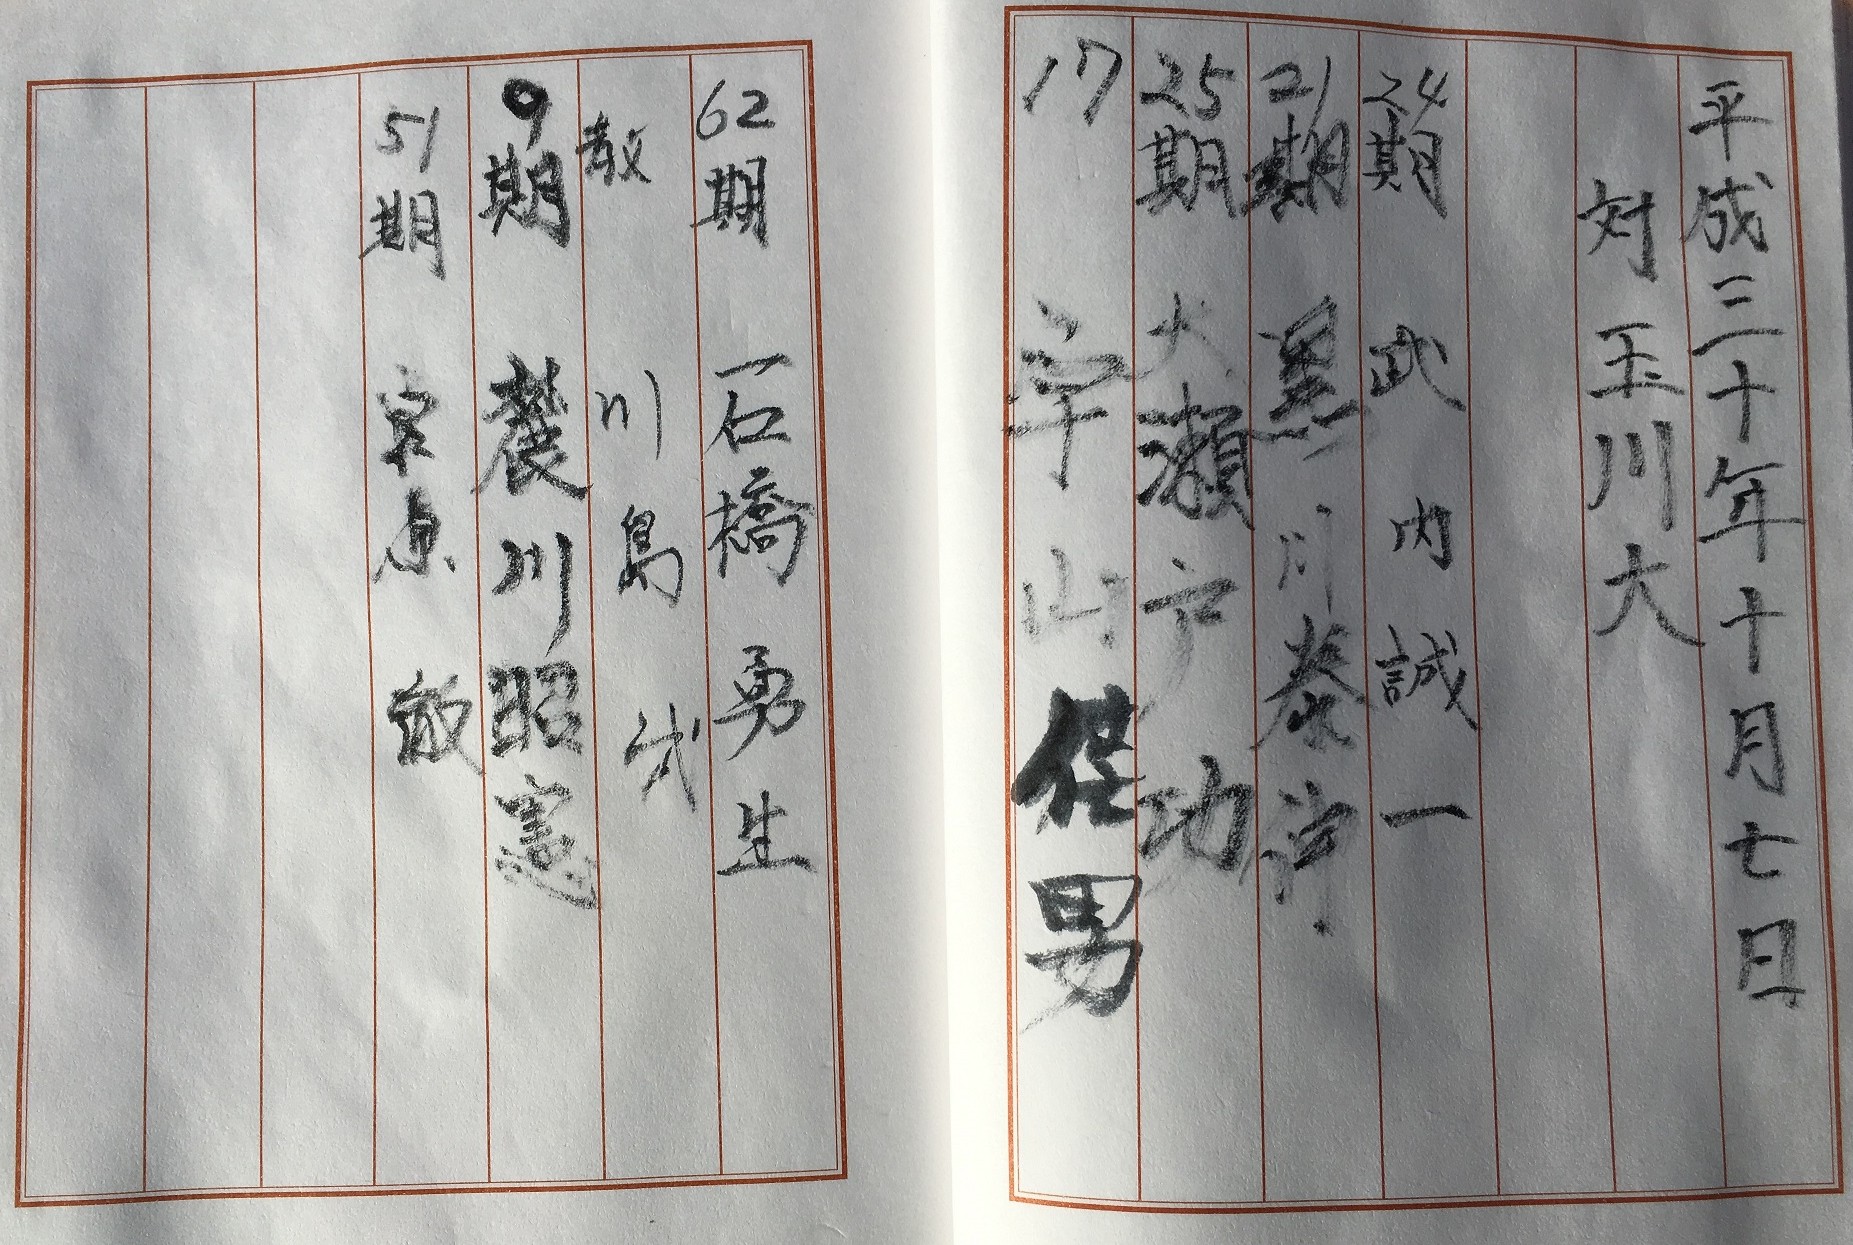 平成三十年十月七日
対 玉川大
24期 武内誠一
21期 黒川泰
25期 大瀬戸 功
17 宇山 保男
62期 石橋 勇生
教 川島
9期 農川昭憲
51期 敏